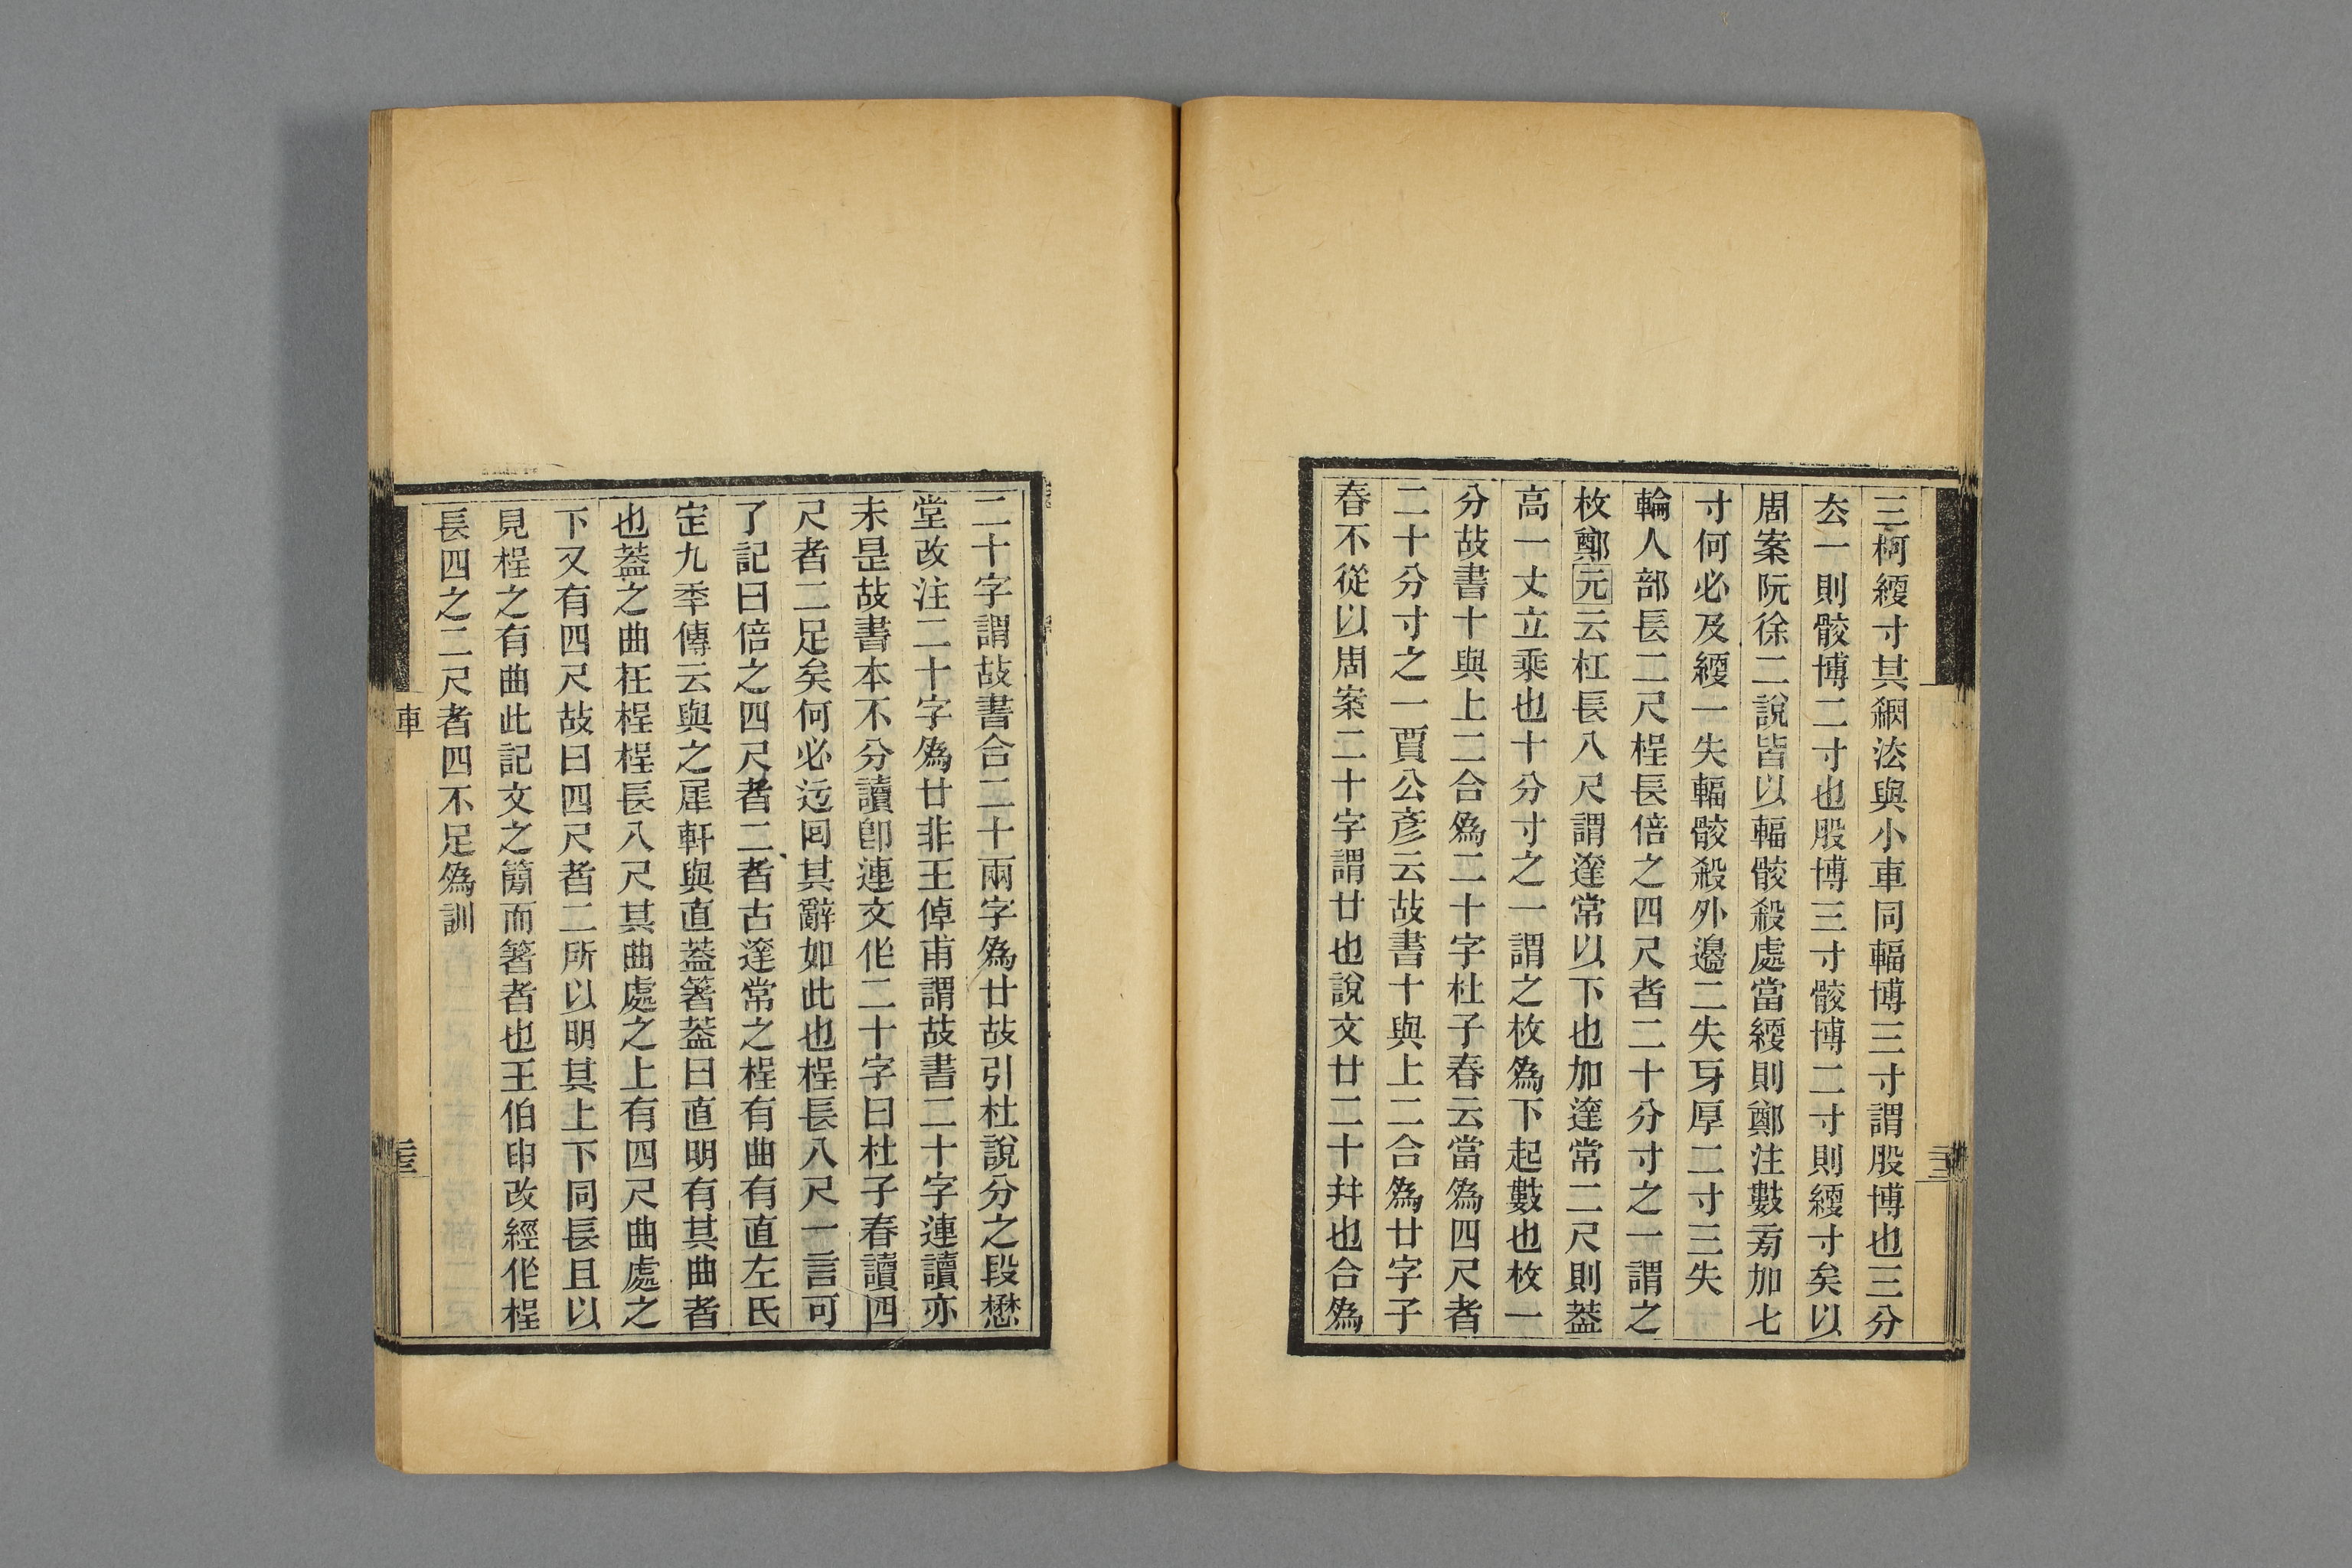 三柯緶寸其綱法與小車同輻博三寸謂股博也三分
厺一則骹博二寸也股博三寸骹博二寸則緶寸矣以
周案阮徐二說皆以輻骹殺處當緶則鄭注數㫄加七
寸何必及緶一失輻骹殺外邊二失牙厚二寸三失
輪人部長二尺桯長倍之四尺者二十分寸之一謂之
枚鄭元云杠長八尺謂達常以下也加達常二尺則蓋
高一丈立乘也十分寸之一謂之枚爲下起數也枚一
分故書十與上二合爲二十字杜子春云當爲四尺者
二十分寸之一賈公彥云故書十與上二合爲廿字子
春不從以周案二十字謂廿也說文廿二十幷也合爲
二十字謂故書合二十兩字爲廿故引杜說分之段懋
堂改注二十字爲廿非王倬甫謂故書二十字連讀亦
未是故書本不分讀卽連文作二十字曰杜子春讀四
尺者二足矣何必迃囘其辭如此也桯長八尺一言可
了記曰倍之四尺者二者古達常之桯有曲有直左氏
定九季傳云與之犀軒與直蓋箸蓋曰直明有其曲者
也蓋之曲在桯桯長八尺其曲處之上有四尺曲處之
下又有四尺故曰四尺者二所以明其上下同長且以
見桯之有曲此記文之簡而箸者也王伯申改經作桯
長四之二尺者四不足爲訓
車